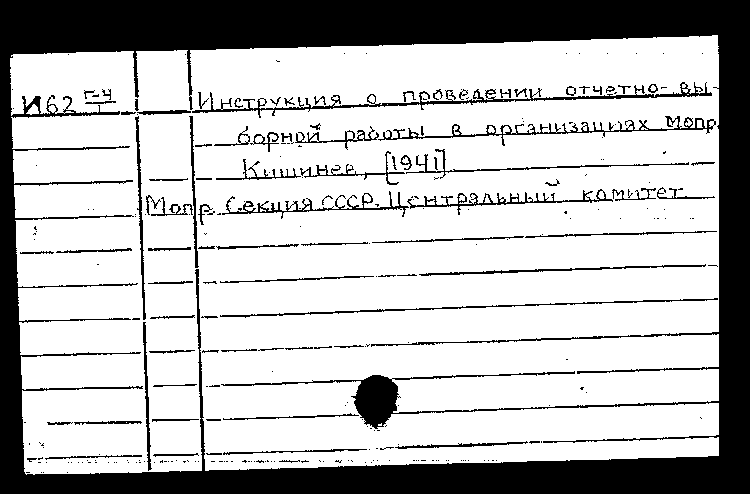 И62 Г-4/I Инструкция о проведении отчетно-вы-
борной работы в организациях Мопр.
Кишинев, [1941]
Мопр. Секция СССР. Центральный комитет